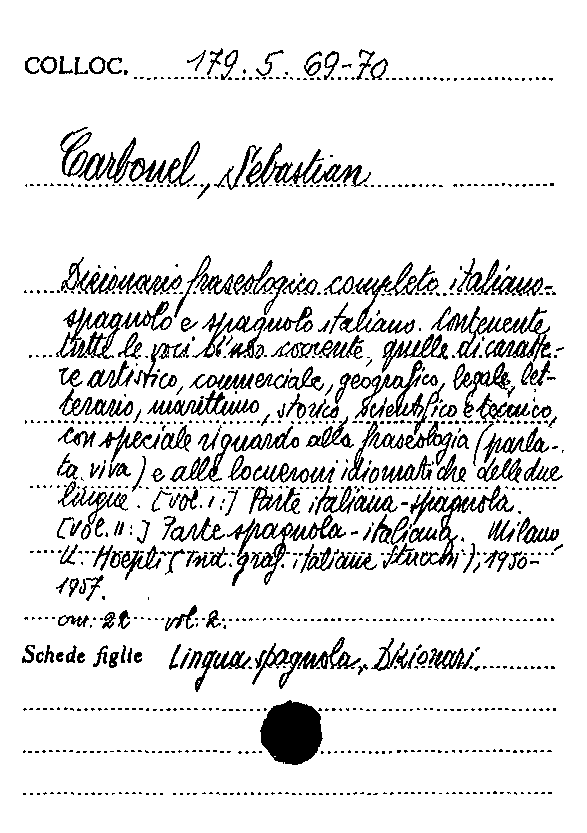 COLLOC. 179.5.69-70
Carbonel, Sebastian
Dizionario fraseologico completo italiano-
spagnolo e spagnolo italiano. Contenente
tutte le voci di uso corrente, quelle di caratte-
re artistico, commerciale, geografico, legale, let-
terario, marittimo, storico, scientifico e tecnico,
con speciale riguardo alla fraseologia (parla-
ta viva) e alle locuzioni idiomatiche delle due
lingue. [vol. I:] Parte italiana-spagnola.
[vol. II:] Parte spagnola-italiana. Milano,
U. Hoepli (Ind. graf. italiane Stucchi), 1950-
1957.
cm. 22 vol. 2.
Schede figlie Lingua spagnola, Dizionari.